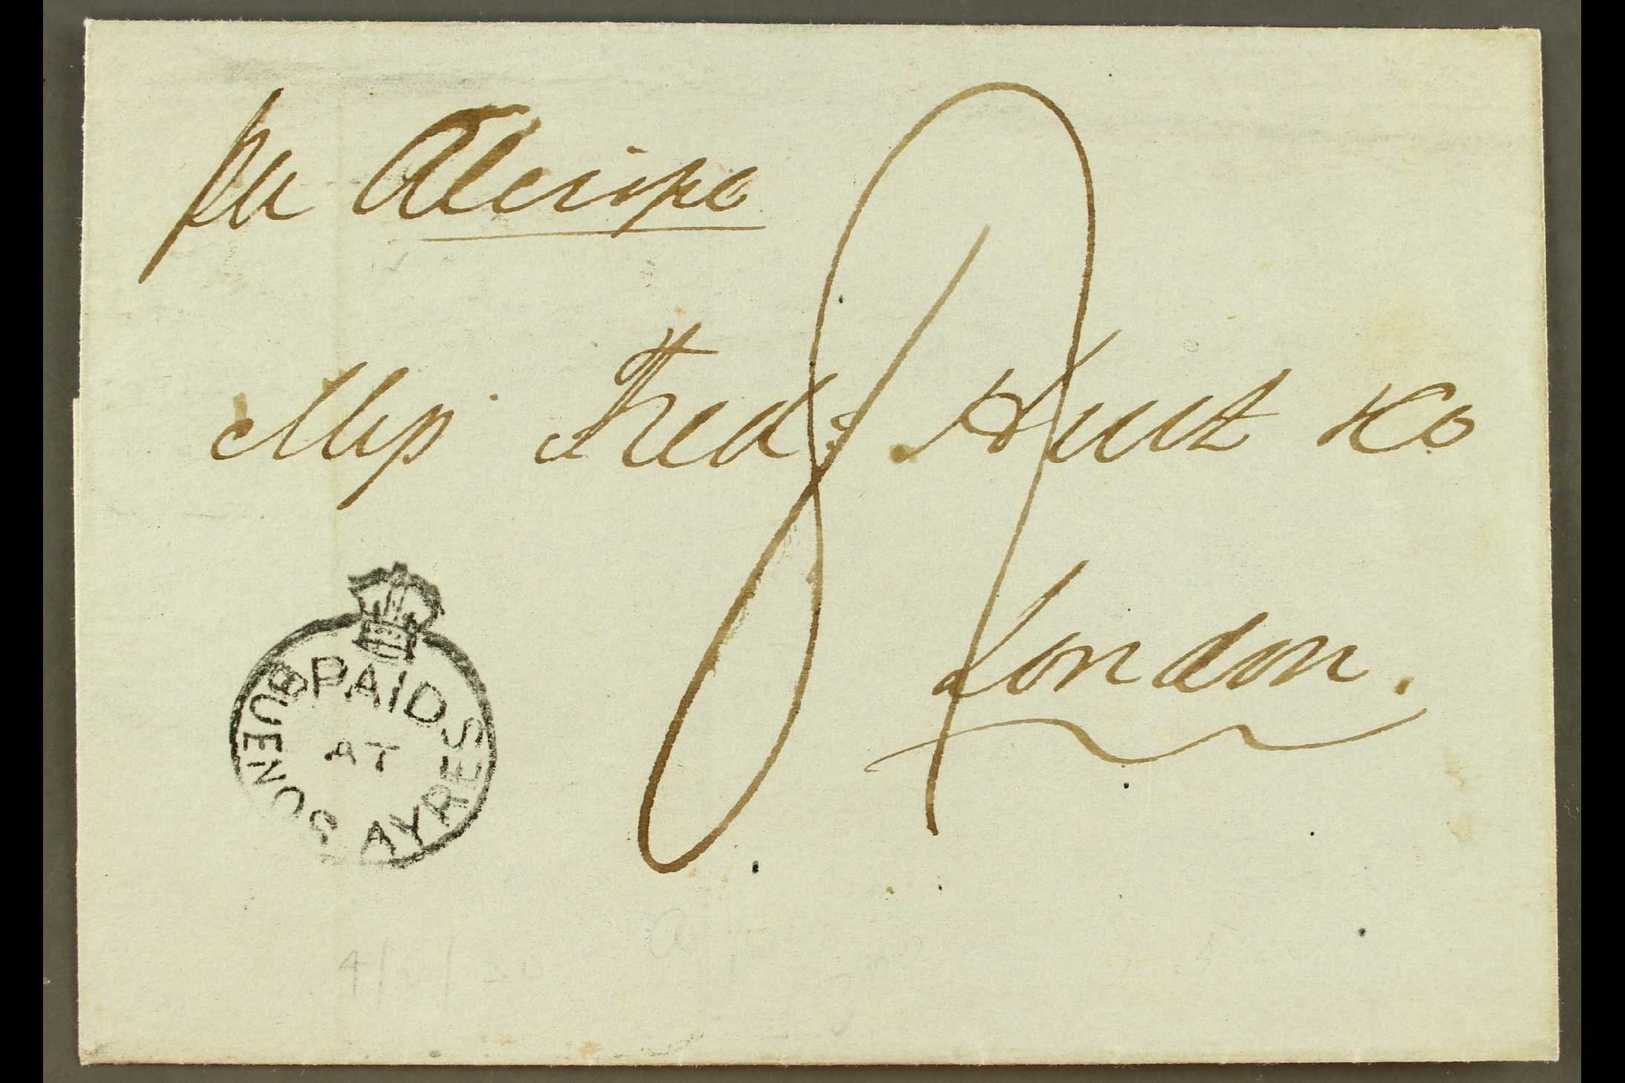 per Calliope
Messrs Fredk Huth & Co
London.
PAID
AT
BUENOS AYRES